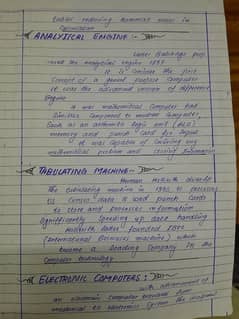 Earlier reducing numerical errors in
Calculation
ANALYTICAL ENGINE
Later Babbage prop
-osed the analytical engine 1837
It is consider the first
Concept of a general purpose computer
it was the advanced version of difference
Engine
It was mathematical computer had
Similar component to modern computer
Such as an arithmetic logic unit (ALU)
memory and punch card for input
It was capable of solving any
mathematical problem and storing information
TABULATING MACHINE
Herman Hollerith developed
the tabulating machine in 1890 to processing
US Census data it used punch cards
to store and processes information
Significantly speeding up data handling
Hollerith later founded IBM
(International Business machine) which
become a leading company in the
Computer technology
ELECTRONIC COMPUTERS:
with advancement of
an electronic computer
mechanical to electronics System the original